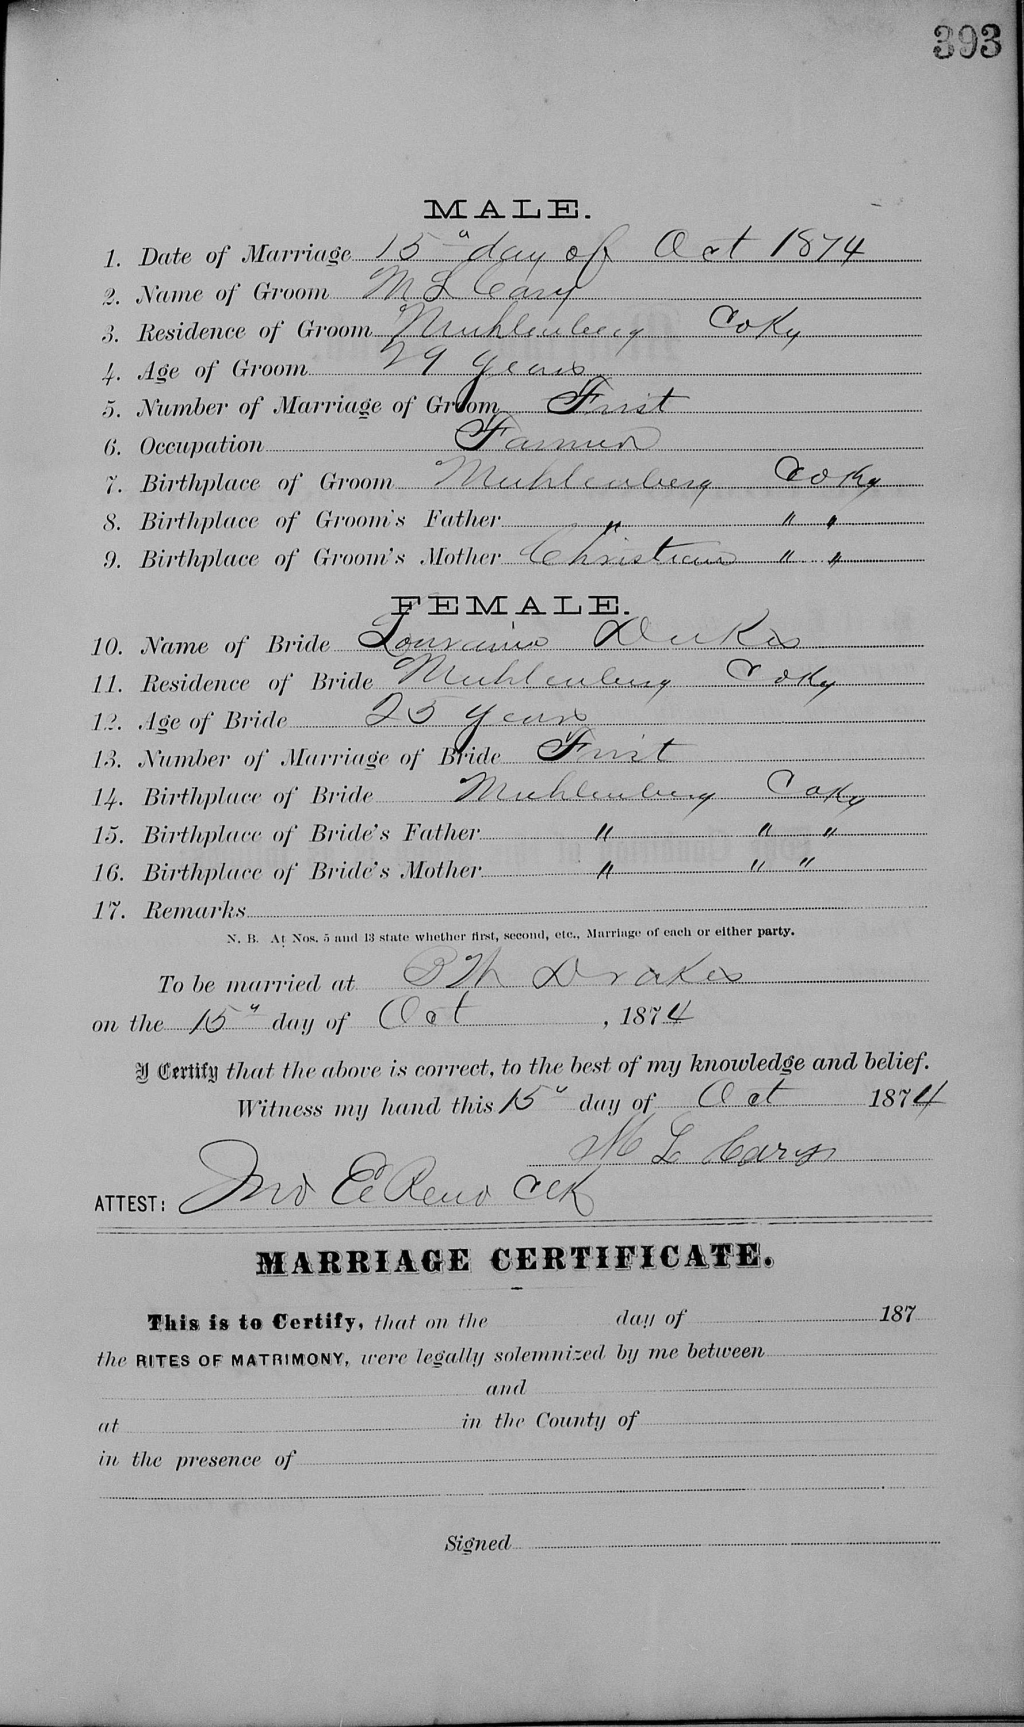 393
MALE.
1. Date of Marriage 15" day of Oct 1874
2. Name of Groom M L Cary
3. Residence of Groom Muhlenberg Co Ky
4. Age of Groom 29 years
5. Number of Marriage of Groom First
6. Occupation Farmer
7. Birthplace of Groom Muhlenberg Co Ky
8. Birthplace of Groom's Father " " "
9. Birthplace of Groom's Mother Christian " "
FEMALE.
10. Name of Bride Dukes
11. Residence of Bride Muhlenberg Co Ky
12. Age of Bride 25 years
13. Number of Marriage of Bride First
14. Birthplace of Bride Muhlenberg Co Ky
15. Birthplace of Bride's Father " " "
16. Birthplace of Bride's Mother " " "
17. Remarks
N. B. At Nos. 5 and 13 state whether first, second, etc., Marriage of each or either party.
To be married at Drakes
on the 15" day of Oct , 1874
I Certify that the above is correct, to the best of my knowledge and belief.
Witness my hand this 15" day of Oct 1874
M L Cary
ATTEST: Jno E Reno Clk
MARRIAGE CERTIFICATE.
This is to Certify, that on the day of 187
the RITES OF MATRIMONY, were legally solemnized by me between
and
at in the County of
in the presence of
Signed